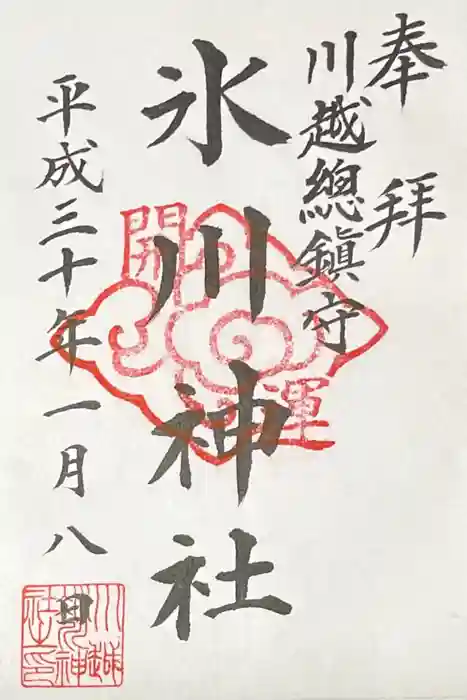 奉拝
川越總鎮守
氷川神社
平成三十年一月八日
開運
川越氷川神社之印